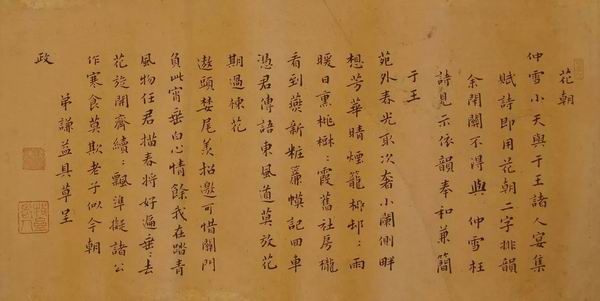 花朝
仲雪小天與于王諸人宴集
賦詩即用花朝二字排韻
余閉關不得與仲雪枉
詩見示依韻奉和兼簡
于王
苑外春光取次奢小闌側畔
想芳華晴煙籠柳邨:雨
暖日熏桃樹:霞舊社房櫳
看到燕新粧簾幙記回車
憑君傳語東風道莫放花
期過楝花
遨頭婪尾美招邀可惜關門
負此宵垂白心情餘我在踏青
風物任君描春將好遍垂:去
花旋開齊續:飄準擬諸公
作寒食莫欺老子似今朝
弟謙益具草呈
政